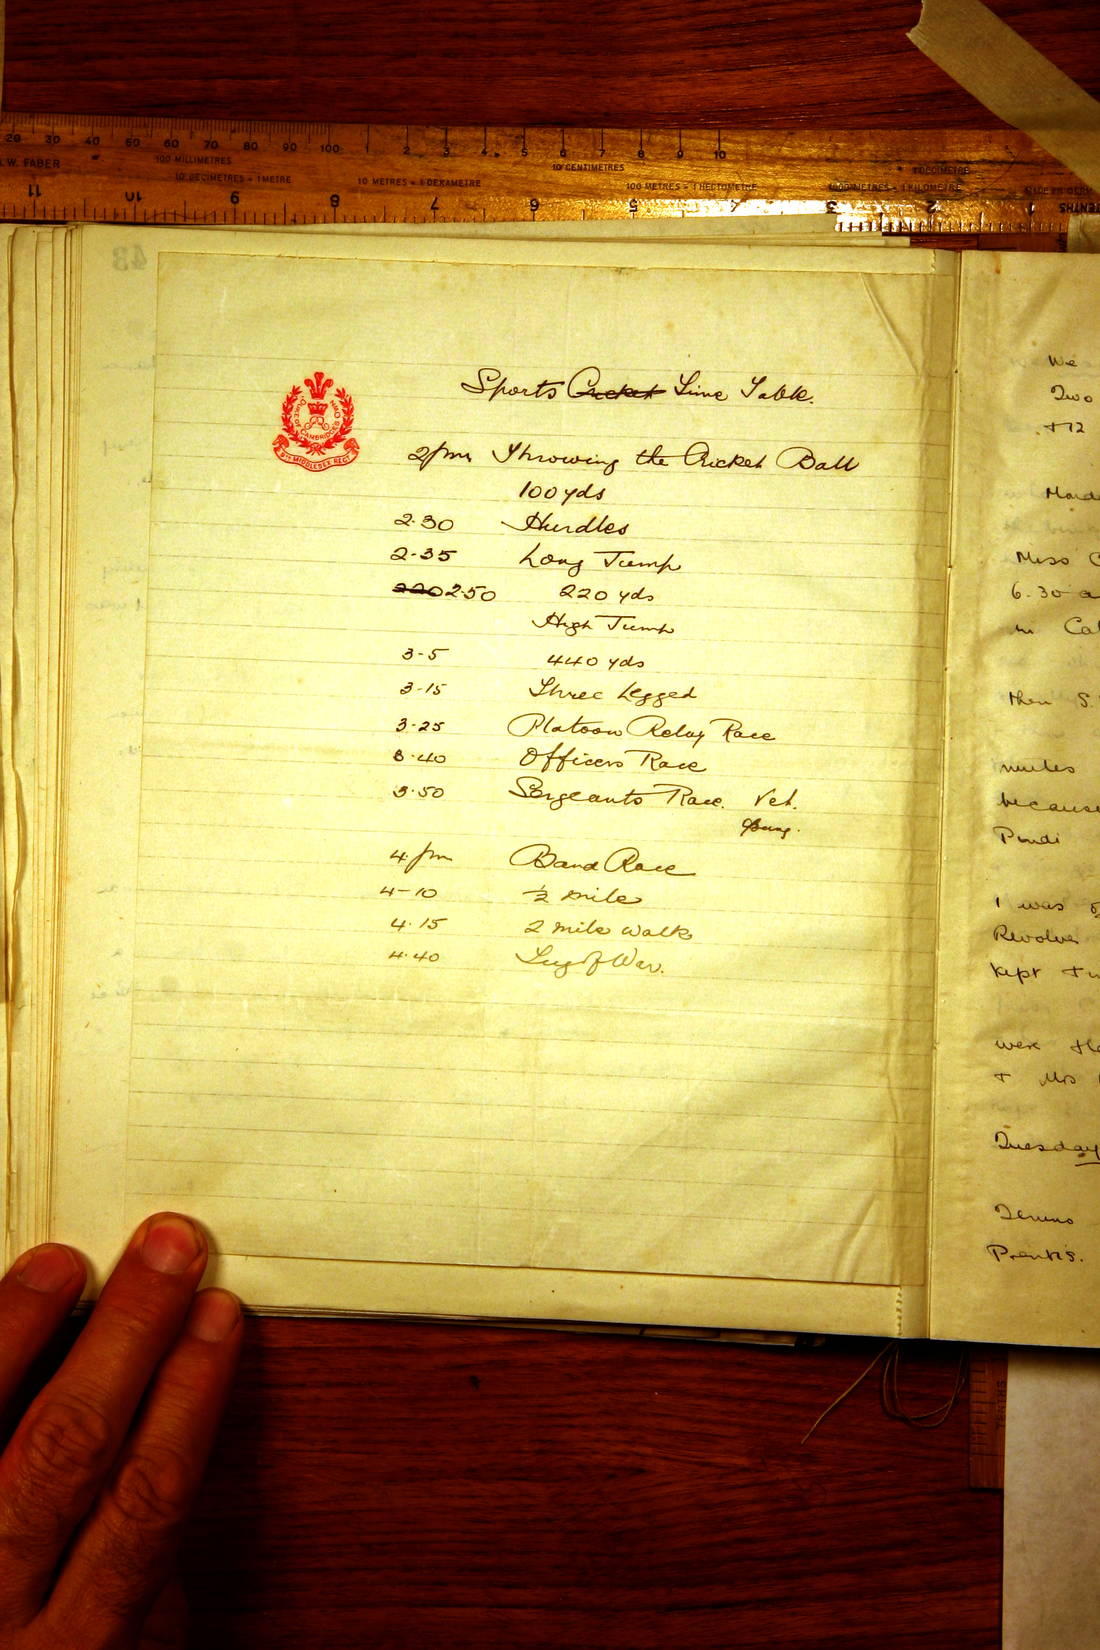 20 30 40 50 60 70 80 90 100 1 2 3 4 5 6 7 8 9 10
W. FABER 100 MILLIMETRES 10 CENTIMETRES
10 DECIMETRES = 1 METRE 10 METRES = 1 DEKAMETRE 100 METRES = 1 HECTOMETRE
11 10 9 8 7 6 5 4 3 2 1 TENTHS
43
DUKE OF CAMBRIDGE'S OWN
9TH MIDDLESEX REGT
Sports Cricket Time Table.
2pm Throwing the Cricket Ball
100 yds
2.30 Hurdles
2-35 Long Jump
220 2.50 220 yds
High Jump
3-5 440 yds
3-15 Three Legged
3-25 Platoon Relay Race
3.40 Officers Race
3.50 Sergeants Race. Vet.
Young.
4 pm Band Race
4-10 ½ mile
4.15 2 mile walk
4.40 Tug of War.
We
Two
+ 12
Miss C
6.30 a
in Cal
then S.
because
Pindi
I was
Revolver
kept
were
+ Mrs
Tuesday